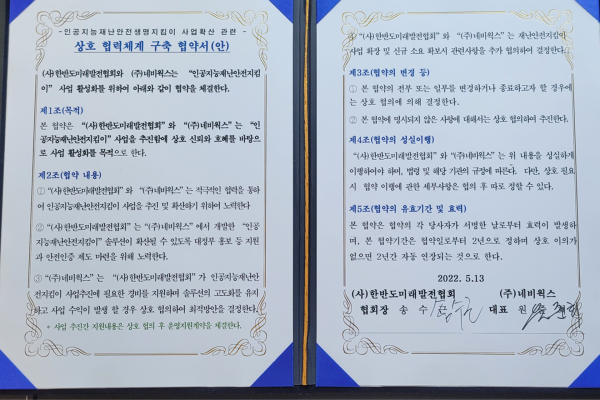 -인공지능재난안전생명지킴이 사업확산 관련 -
상호 협력체계 구축 협약서(안)
(사)한반도미래발전협회와 (주)네비웍스는 "인공지능재난안전지킴
이" 사업 활성화를 위하여 아래와 같이 협약을 체결한다.
제1조(목적)
본 협약은 "(사)한반도미래발전협회"와 "(주)네비웍스"는 "인
공지능재난안전지킴이" 사업을 추진함에 상호 신뢰와 호혜를 바탕으
로 사업 활성화를 목적으로 한다.
제2조(협약 내용)
① "(사)한반도미래발전협회"와 "(주)네비웍스"는 적극적인 협력을 통하
여 인공지능재난안전지킴이 사업을 추진 및 확산하기 위하여 노력한다
② "(사)한반도미래발전협회"는 "(주)네비웍스"에서 개발한 "인공
지능재난안전지킴이" 솔루션이 확산될 수 있도록 대정부 홍보 등 지원
과 안전인증 제도 마련을 위해 노력한다.
③ "(주)네비웍스"는 "(사)한반도미래발전협회"가 인공지능재난안
전지킴이 사업추진에 필요한 경비를 지원하며 솔루션의 고도화를 유지
하고 사업 수익이 발생 할 경우 상호 협의하여 최적방안을 결정한다.
* 사업 추진간 지원내용은 상호 협의 후 운영지원계약을 체결한다.
④ "(사)한반도미래발전협회"와 "(주)네비웍스"는 재난안전지킴이
사업 확장 및 신규 소요 확보시 관련사항을 추가 협의하여 결정한다.
제3조(협약의 변경 등)
① 본 협약의 전부 또는 일부를 변경하거나 종료하고자 할 경우에
는 상호 협의에 의해 결정한다.
② 본 협약에 명시되지 않은 사항에 대해서는 상호 협의하여 추진한다.
제4조(협약의 성실이행)
"(사)한반도미래발전협회"와 "(주)네비웍스"는 위 내용을 성실하게
이행하여야 하며, 법령 및 해당 기관의 규정에 따른다. 다만, 상호 필요
시 협약 이행에 관한 세부사항은 협의 후 따로 정할 수 있다.
제5조(협약의 유효기간 및 효력)
본 협약은 협약의 각 당사자가 서명한 날로부터 효력이 발생하
며, 본 협약기간은 협약일로부터 2년으로 정하며 상호 이의가
없으면 2년간 자동 연장되는 것으로 한다.
2022. 5.13
(사)한반도미래발전협회 (주)네비웍스
협회장 송 수 대표 원